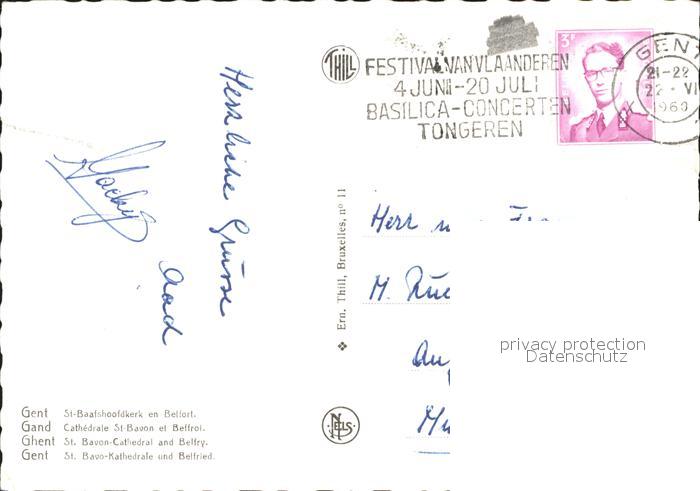 Herzliche Grüsse
Aad
Gent St-Baafshoofdkerk en Belfort.
Gand Cathédrale St-Bavon et Beffroi.
Ghent St. Bavon-Cathedral and Belfry.
Gent St. Bavo-Kathedrale und Belfried.
Ern. Thill, Bruxelles, nº 11
THILL
NELS
FESTIVAL VAN VLAANDEREN
4 JUNI-20 JULI
BASILICA-CONCERTEN
TONGEREN
3F
GENT
21-22
22 · VI
1969
Herr
M.
privacy protection
Datenschutz